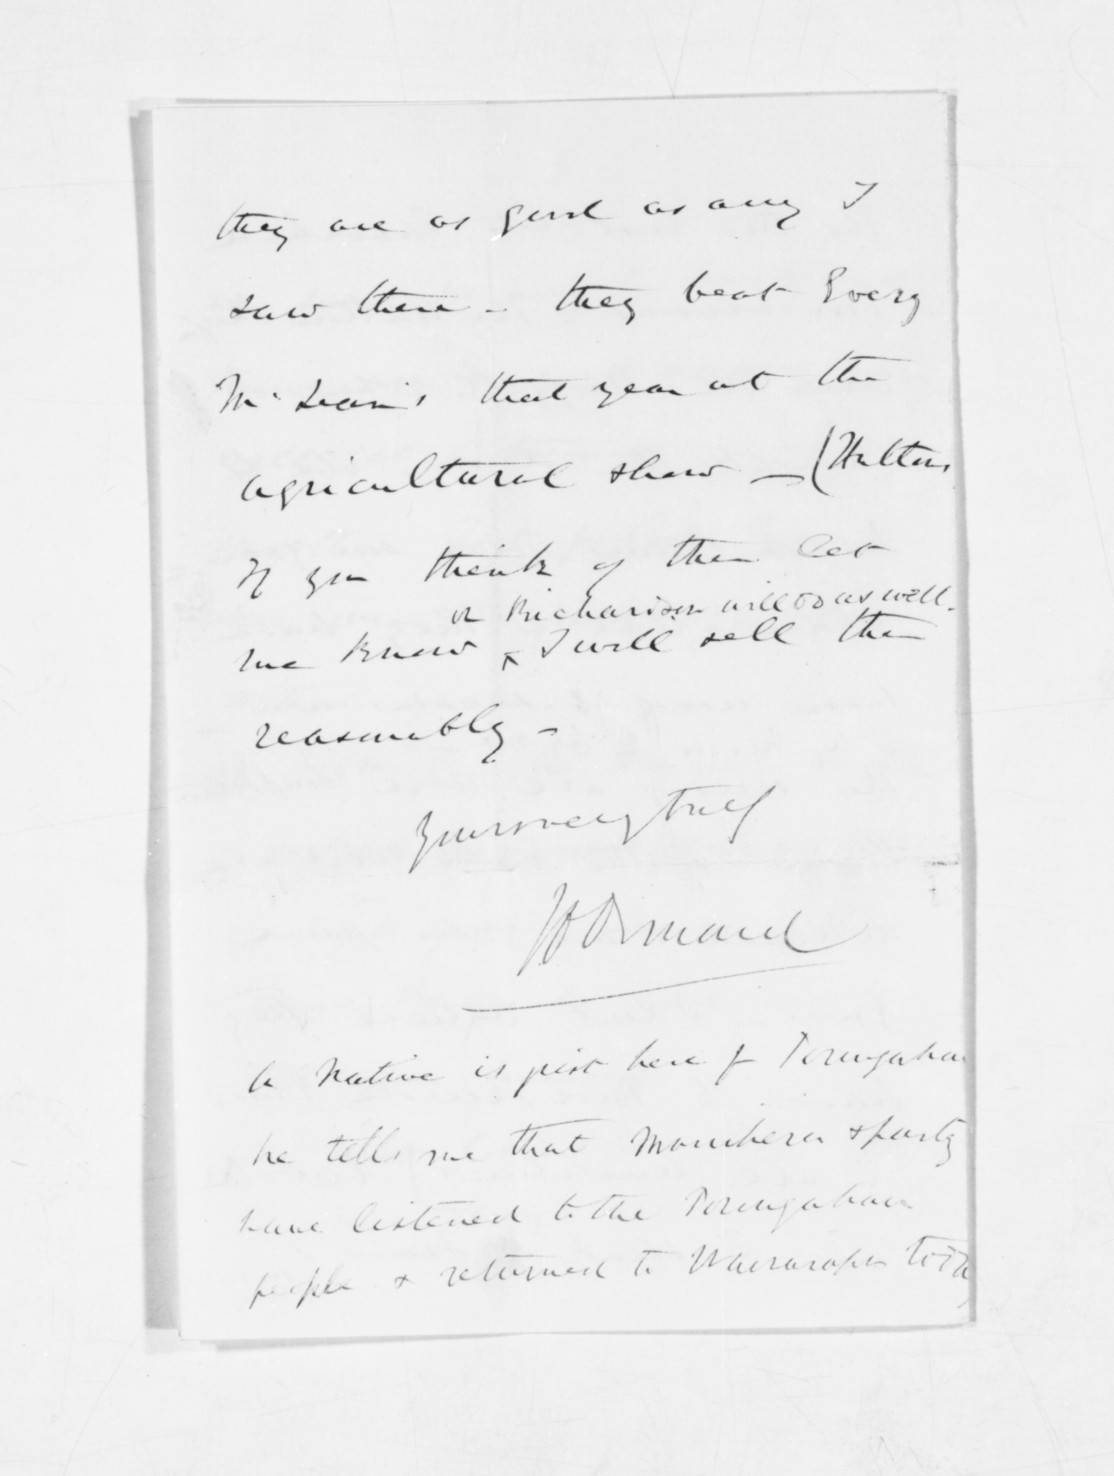 they are as good as any I
saw there - they beat Every
McLean's that year at the
agricultural show - (Hultons
If you think of them let
or Richardson will do as well.
me know & I will sell them
reasonably -
Yours very truly
JD Ormond
A Native is just here fr Porungahau
he tells me that Manihera & party
have listened to the Porungahau
people & returned to Wairarapa today